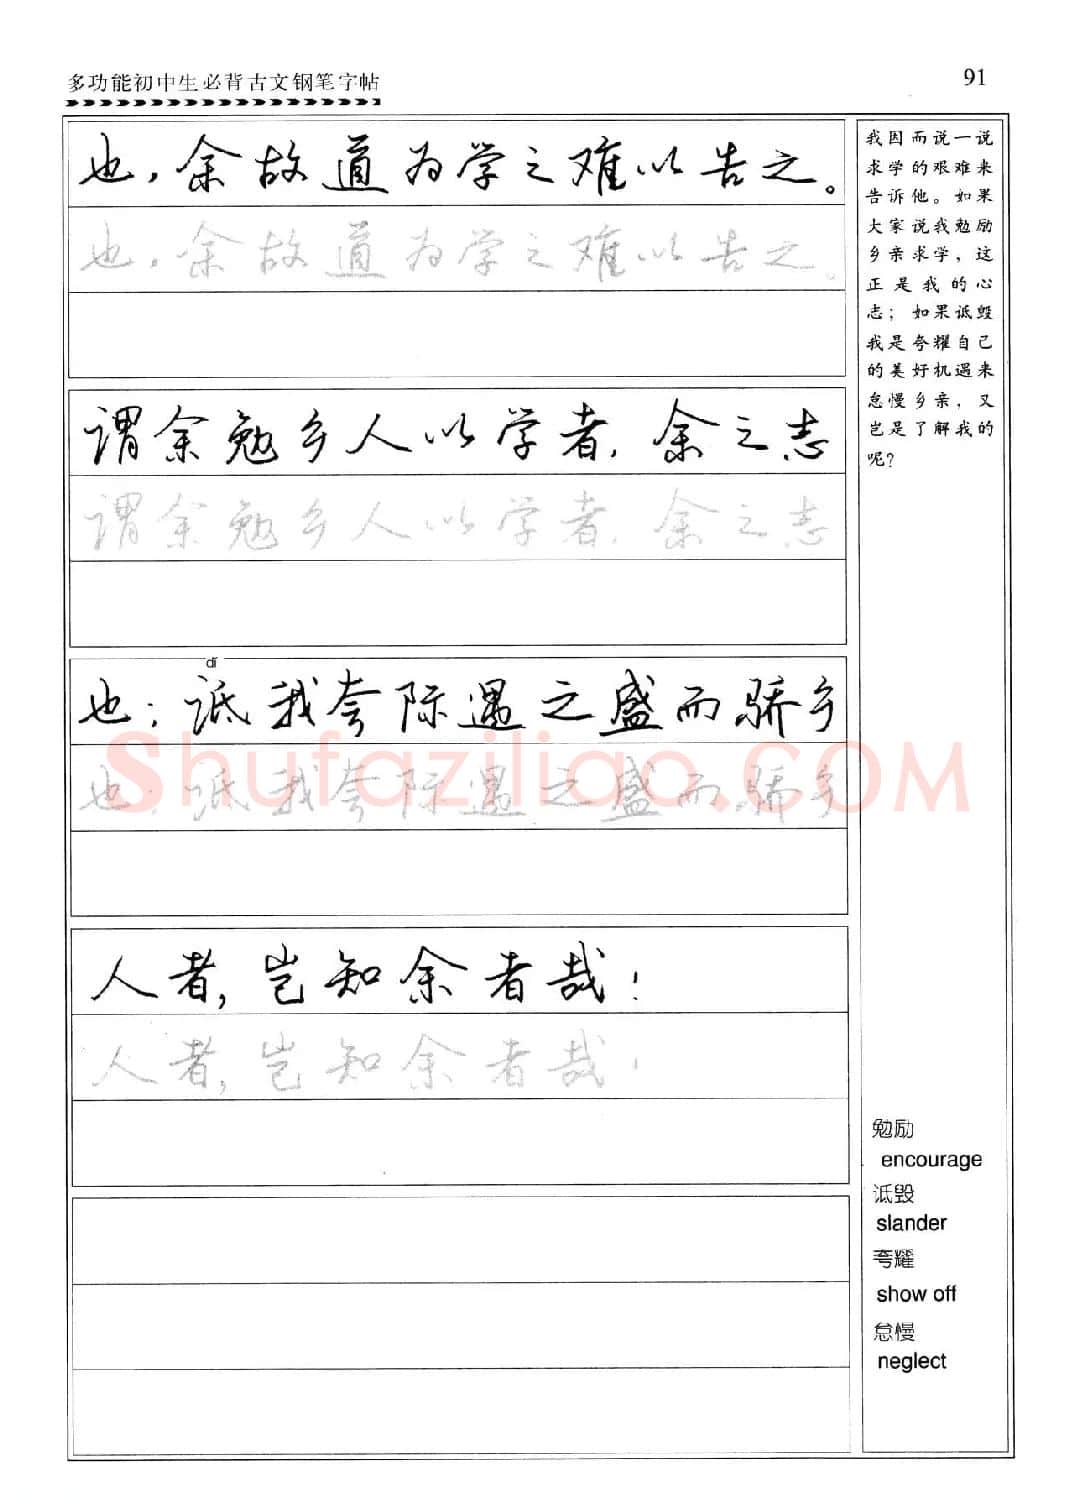 多功能初中生必背古文钢笔字帖
91
也，余故道为学之难以告之。
也，余故道为学之难以告之。
谓余勉乡人以学者，余之志
谓余勉乡人以学者，余之志
dǐ
也；诋我夸际遇之盛而骄乡
也；诋我夸际遇之盛而骄乡
Shufaziliao.COM
人者，岂知余者哉！
人者，岂知余者哉！
我因而说一说
求学的艰难来
告诉他。如果
大家说我勉励
乡亲求学，这
正是我的心
志；如果诋毁
我是夸耀自己
的美好机遇来
怠慢乡亲，又
岂是了解我的
呢？
勉励
encourage
诋毁
slander
夸耀
show off
怠慢
neglect